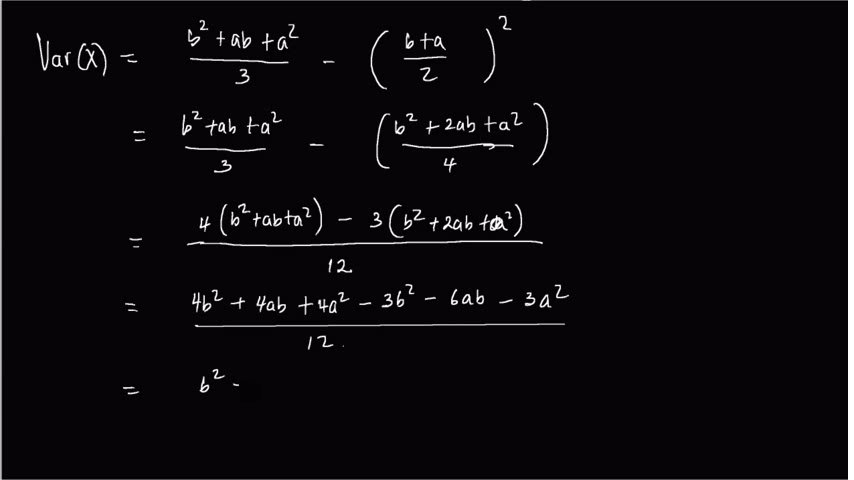 Var(X) = (b² + ab + a²)/3 - ((b+a)/2)²
= (b² + ab + a²)/3 - ((b² + 2ab + a²)/4)
= (4(b² + ab + a²) - 3(b² + 2ab + a²))/12
= (4b² + 4ab + 4a² - 3b² - 6ab - 3a²)/12
= b² -